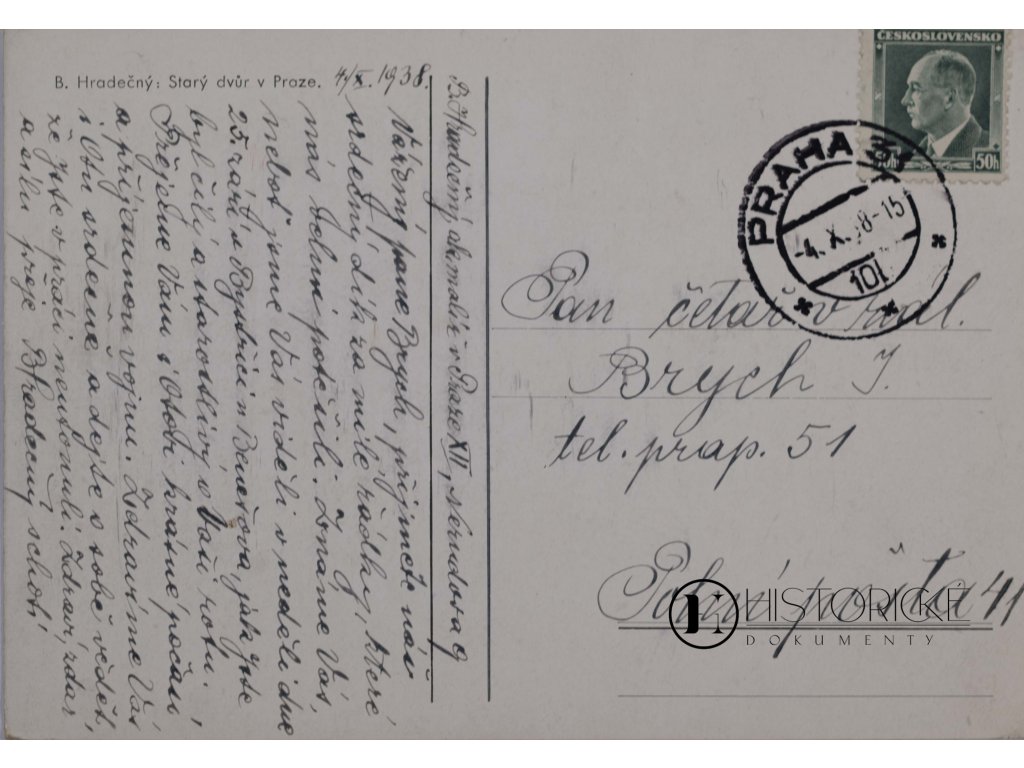 B. Hradečný: Starý dvůr v Praze.
4/X. 1938.
B. Hradečný akc. malíř v Praze XII, Nerudova 9
Vážený pane Brych, přijměte náš
srdečný dík za milé řádky, které
nás velmi potěšili. Známe Vás,
neboť jsme Vás viděli v neděli dne
25. září v Bystřici u Benešova, jak jste
byl čilý a starostlivý o Vaši rotu.
Přejeme Vám i Otovi krásné počasí
a příjemnou vojnu. Zdravíme Vás
i Otu srdečně a dejte o sobě vědět,
že jste v práci neutonuli. Zdraví, zdar
a sílu přeje BHradečný s chotí
ČESKOSLOVENSKO
50h 50h
PRAHA
-4. X. 38-15
101
Pan četař v zál.
Brych J.
tel. prap. 51
Polní pošta 41
HISTORICKÉ
DOKUMENTY